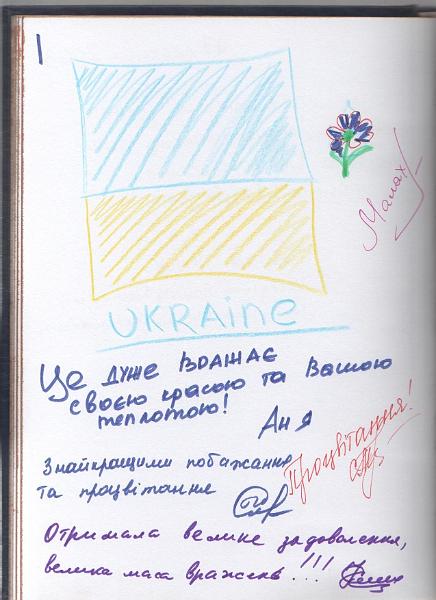 Малах
UKRAine
Це дуже вражає
своєю красою та Вашою
теплотою!
Аня
Процвітання!
Знайкращими побажання
та процвітання
Отримала велике задоволення,
велика маса вражень!!!